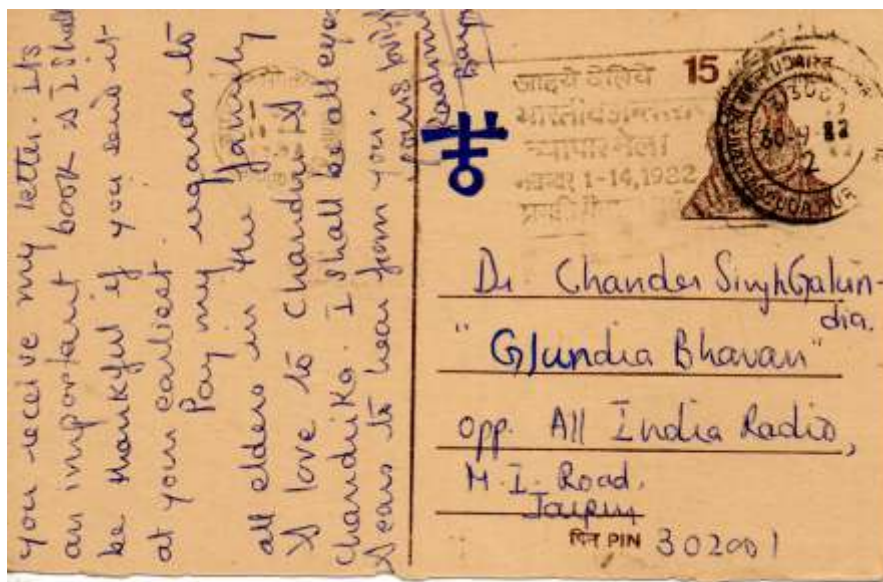 you receive my letter. Its
an important book & I shall
be thankful if you send it
at your earliest.
Pay my regards to
all elders in the family
& love to Chandru &
Chandrika. I shall be all eyes
& ears to hear from you.
15
जाइये देखिये
व्यापार मेला
नवम्बर 1-14, 1982
Dr Chander Singh Galun-
dia.
"Glundia Bhavan"
opp. All India Radio,
M. I. Road.
Jaipur
पिन PIN 302001